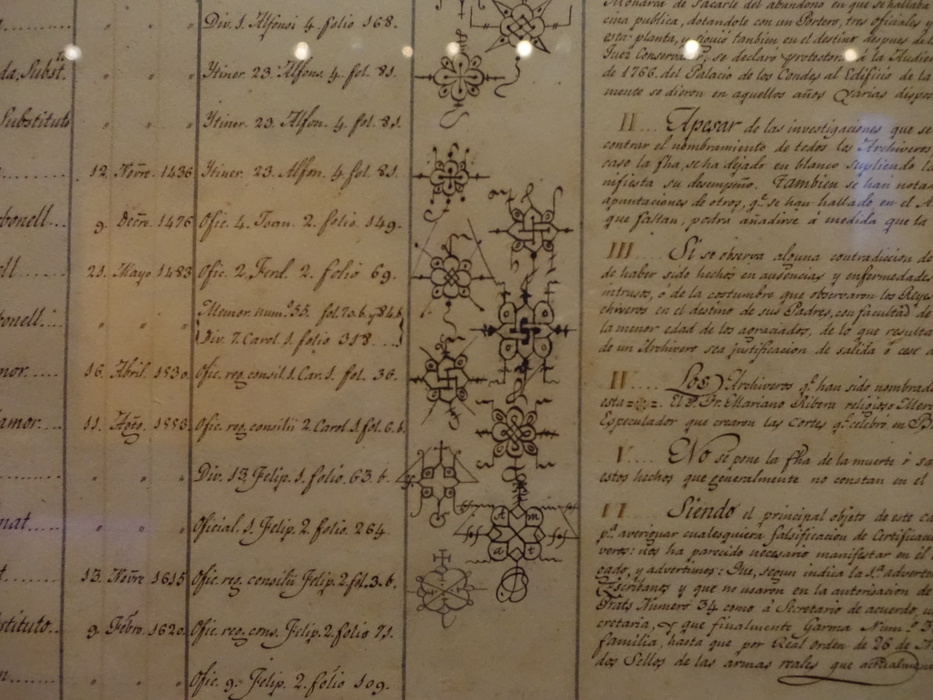 " " Div. 1. Alfonsi 4. folio 168.
da, Subst. " " Itiner. 23. Alfons. 4. fol. 81.
Substituto " " Itiner. 23. Alfon. 4. fol. 81.
12. Novre. 1436 Itiner. 23. Alfon. 4. fol. 81.
bonell... 9. Decre. 1476 Ofic. 4. Ioan. 2. folio 149.
ll..... 21. Mayo 1483 Ofic. 2. Ferd. 2. folio 69.
bonell. " " Memor. num.
Div. 7. Carol. 1. folio 318.
nor..... 16. Abril. 1530. Ofic. reg. consil. 1. Car. 1. fol. 36.
amor.... 11. 1553 Ofic. reg. consilii 2. Carol. 1. fol. 6. b.
Div. 13. Felip. 1. folio 63. b.
nat..... " " Oficial. 1. Felip. 2. folio 264
t..... 13. Novre 1615 Ofic. reg. consilii Felip. 2. fol. 3. b.
stituto.. 9. Febro. 1620. Ofic. reg. cons. Felip. 2. folio 71.
n..... Ofic. 9. Felip. 2. folio 109.
Monarca de sacarle del abandono en que se hallaba
cina publica, dotandole con un Portero, tres oficiales y
esta planta, y siguió tambien en el destino despues de
Juez Conservador, se declaró protector á la Audien
de 1766. del Palacio de los Condes al Edificio de la
mente se dieron en aquellos años varias dispos
II... Apesar de las investigaciones que se
contrar el nombramiento de todos los Archiveros
caso la fha, se ha dejado en blanco supliendo la
nifiesta su desempeño. Tambien se han notad
apuntaciones de otros, q.e se han hallado en el A
que faltan, podra añadirse á medida que la
III... Si se observa alguna contradiccion de
de haber sido hechos en ausencias y enfermedades
intrusos, ó de la costumbre que observaron los Reyes
chiveros en el destino de sus Padres, con facultad de
la menor edad de los agraciados, de lo que resulta
de un Archivero sea justificacion de salida ó cese a
IV.... Los Archiveros q.e han sido nombrado
esta El P. Fr. Mariano Ribera religioso Merc
Especulador que crearon las Cortes q.e celebró en B
V.... No se pone la fha de la muerte ó sa
estos hechos que generalmente no constan en el
VI... Siendo el principal objeto de este ca
p.a averiguar cualesquiera falsificacion de Certificac
veros: nos ha parecido necesario manifestar en el
gado, y advertimos: Que, segun indica la 1.a advert
Escribanes y que no usaron en la autorizacion de
Prats Numero 34 como á Secretario de acuerdo,
cretaria, y que finalmente Garma Num.o 3
familia, hasta que por Real orden de 26 de
dos Sellos de las armas reales que actualmen